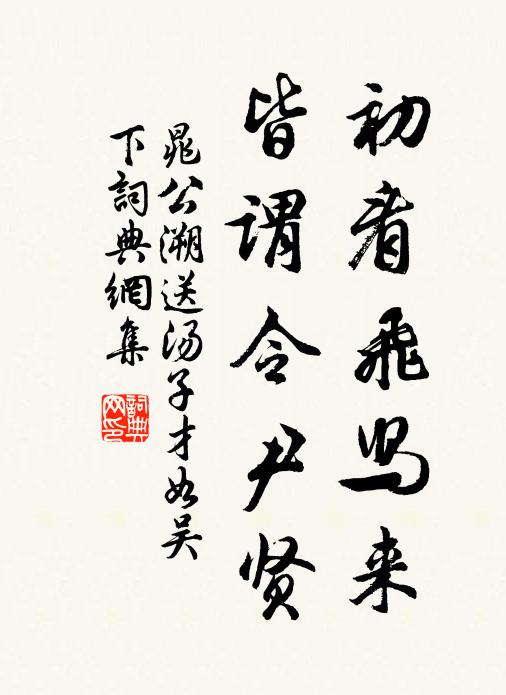 初看飛舄来
皆谓令尹贤
晁公溯送汤子才如吴
下詞典網集
詞典网印